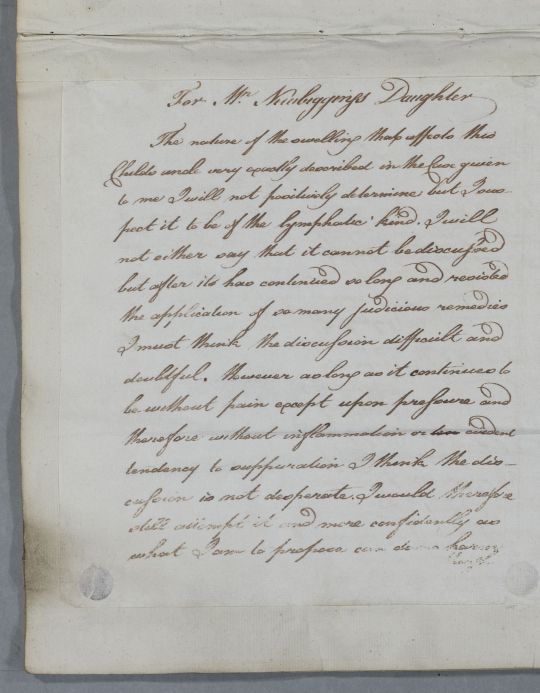 For Mr. Newbiggings Daughter
The nature of the swelling that affects this
Childs ancle very exactly described in the Case given
to me I will not positively determine but I sus=
pect it to be of the lymphatic kind. I will
not either say that it cannot be discussed
but after its has continued so long and resisted
the application of so many judicious remedies
I must think the discussion difficult and
doubtful. However as long as it continues to
be without pain except upon pressure and
therefore without inflammation or evident
tendency to suppuration I think the dis-
cussion is not desperate. I would therefore
still attempt it and more confidently as
what I am to propose can do no harm